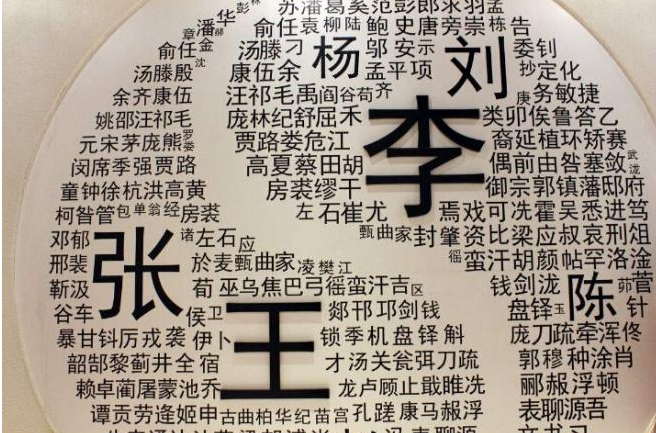 苏潘葛奚范彭郎
华 俞任袁柳陆鲍史唐旁崇栋告
章潘金
俞任 汤滕刁 杨 邬安示 刘 委钊
汤滕殷沈 康伍余 孟平项 抄定化
余齐康伍 汪祁毛禹阎谷荀齐 庚务敏捷
姚邵汪祁毛 庞林纪舒屈禾 李 类卯俟鲁答乙
元宋茅庞熊罗娄 贾路娄危江 裔延植环矫赛
闵席季强贾路 高夏蔡田胡 偶前由昝塞敛武泷
童钟徐杭洪高黄 房裘缪干 御宗郭镇藩邸府
柯昝管包单翁经房裘 左石崔尤 焉戏可冼霍吴悉进笃
邓郁 张 诸左石应 甄曲家封肇资比梁应叔哀刑俎
邢裴 於麻甄曲家凌樊江 徭蛮汗胡颜帖罕洛淦
靳汲 荀巫乌焦巴弓徭蛮汗吉区 钱剑泷 陈 茆菅
谷车 侯卫 王 郯邗邛剑钱 盘铎玉 针
暴甘钭厉戎袭伊卜 锁季机盘铎斛 庞刀疏牵浑佟
韶郜黎蓟井全宿 才汤关瓮弭刀疏 郭穆种涂肖
赖卓蔺屠蒙池乔 龙卢顾止戢睢冼 郦赧浮顿
谭贡劳逄姬申古曲柏华纪苗宫孔蹉康马赧浮 表聊源吾